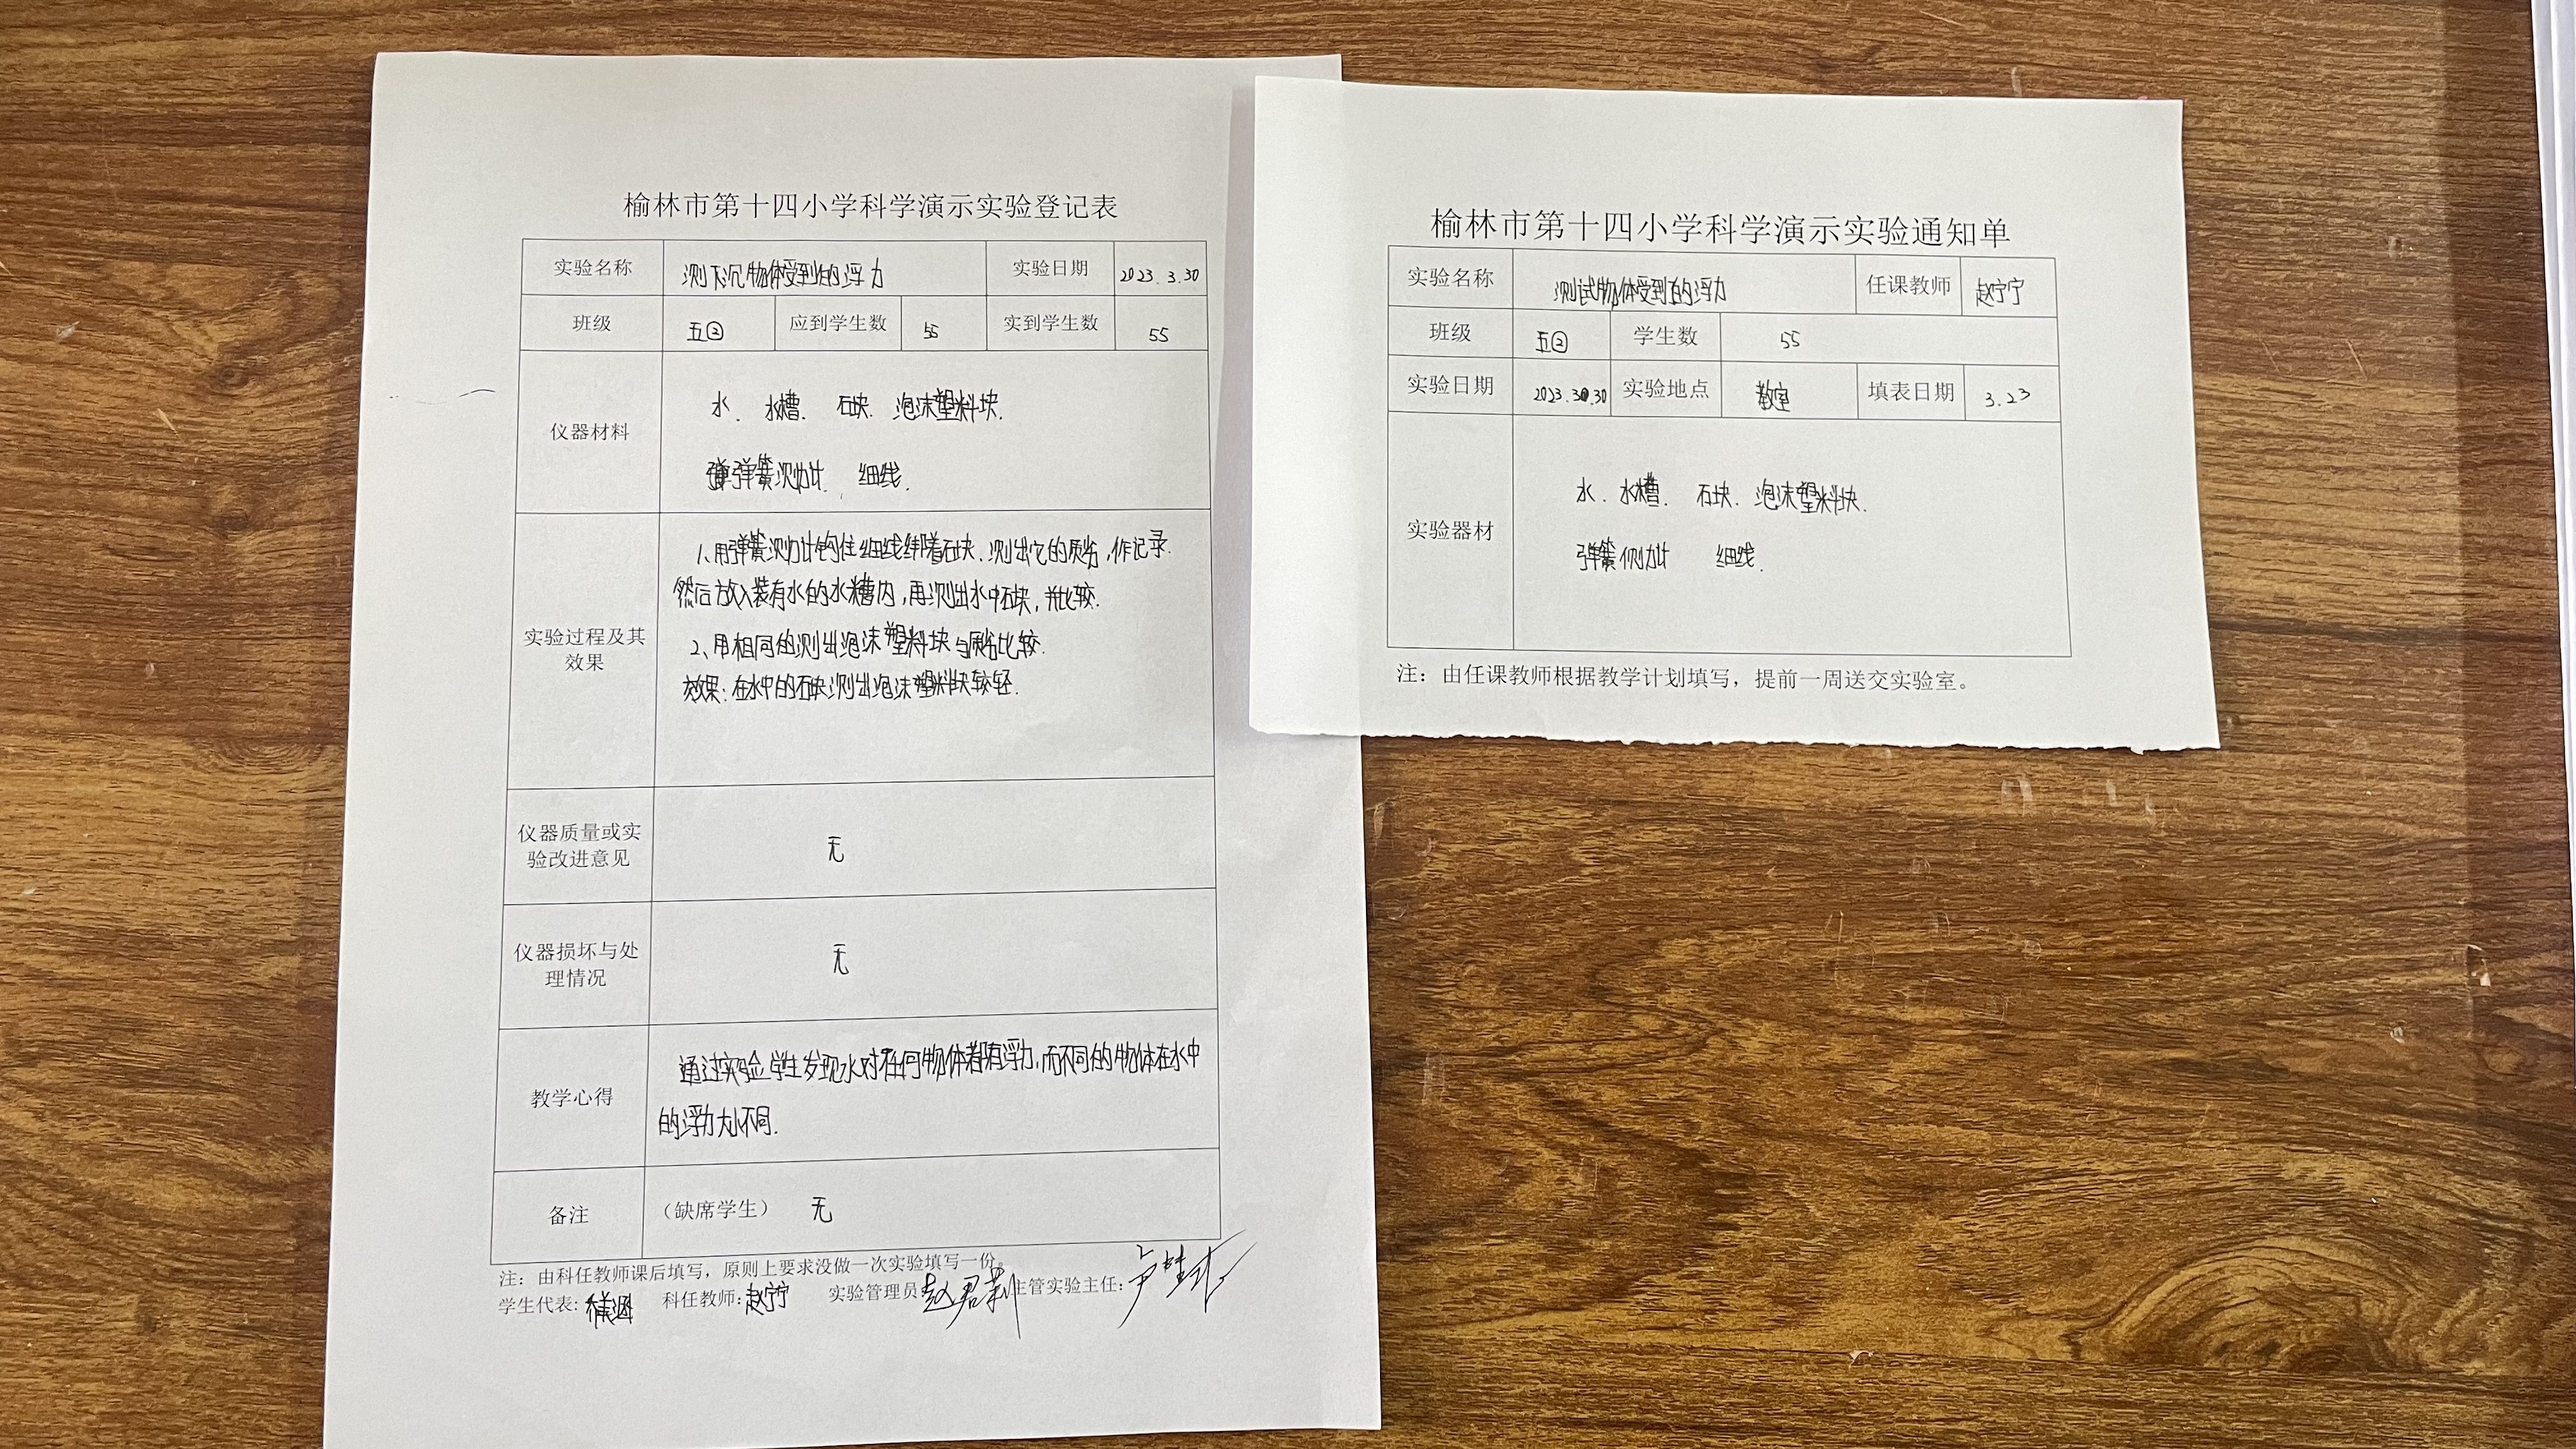 榆林市第十四小学科学演示实验登记表
实验名称 测下沉物体受到的浮力 实验日期 2023.3.30
班级 五② 应到学生数 55 实到学生数 55
仪器材料
水. 水槽. 石块. 泡沫塑料块.
弹簧测力计. 细线.
实验过程及其
效果
1、用弹簧测力计钩住细线绑着石块.测出它的质量,作记录.
然后放入装有水的水槽内,再测出水中石块,并比较.
2、用相同的测出泡沫塑料块与质量比较.
效果:在水中的石块测出泡沫塑料块较轻.
仪器质量或实
验改进意见
无
仪器损坏与处
理情况
无
教学心得
通过实验学生发现水对任何物体都有浮力,而不同的物体在水中
的浮力大小不同.
备注 （缺席学生） 无
注：由科任教师课后填写，原则上要求没做一次实验填写一份。
学生代表: 科任教师:赵宁宁 实验管理员: 赵君莉 主管实验主任:
榆林市第十四小学科学演示实验通知单
实验名称 测试物体受到的浮力 任课教师 赵宁宁
班级 五② 学生数 55
实验日期 实验地点 教室 填表日期 3.23
实验器材
水. 水槽. 石块. 泡沫塑料块.
弹簧侧力计 细线.
注：由任课教师根据教学计划填写，提前一周送交实验室。